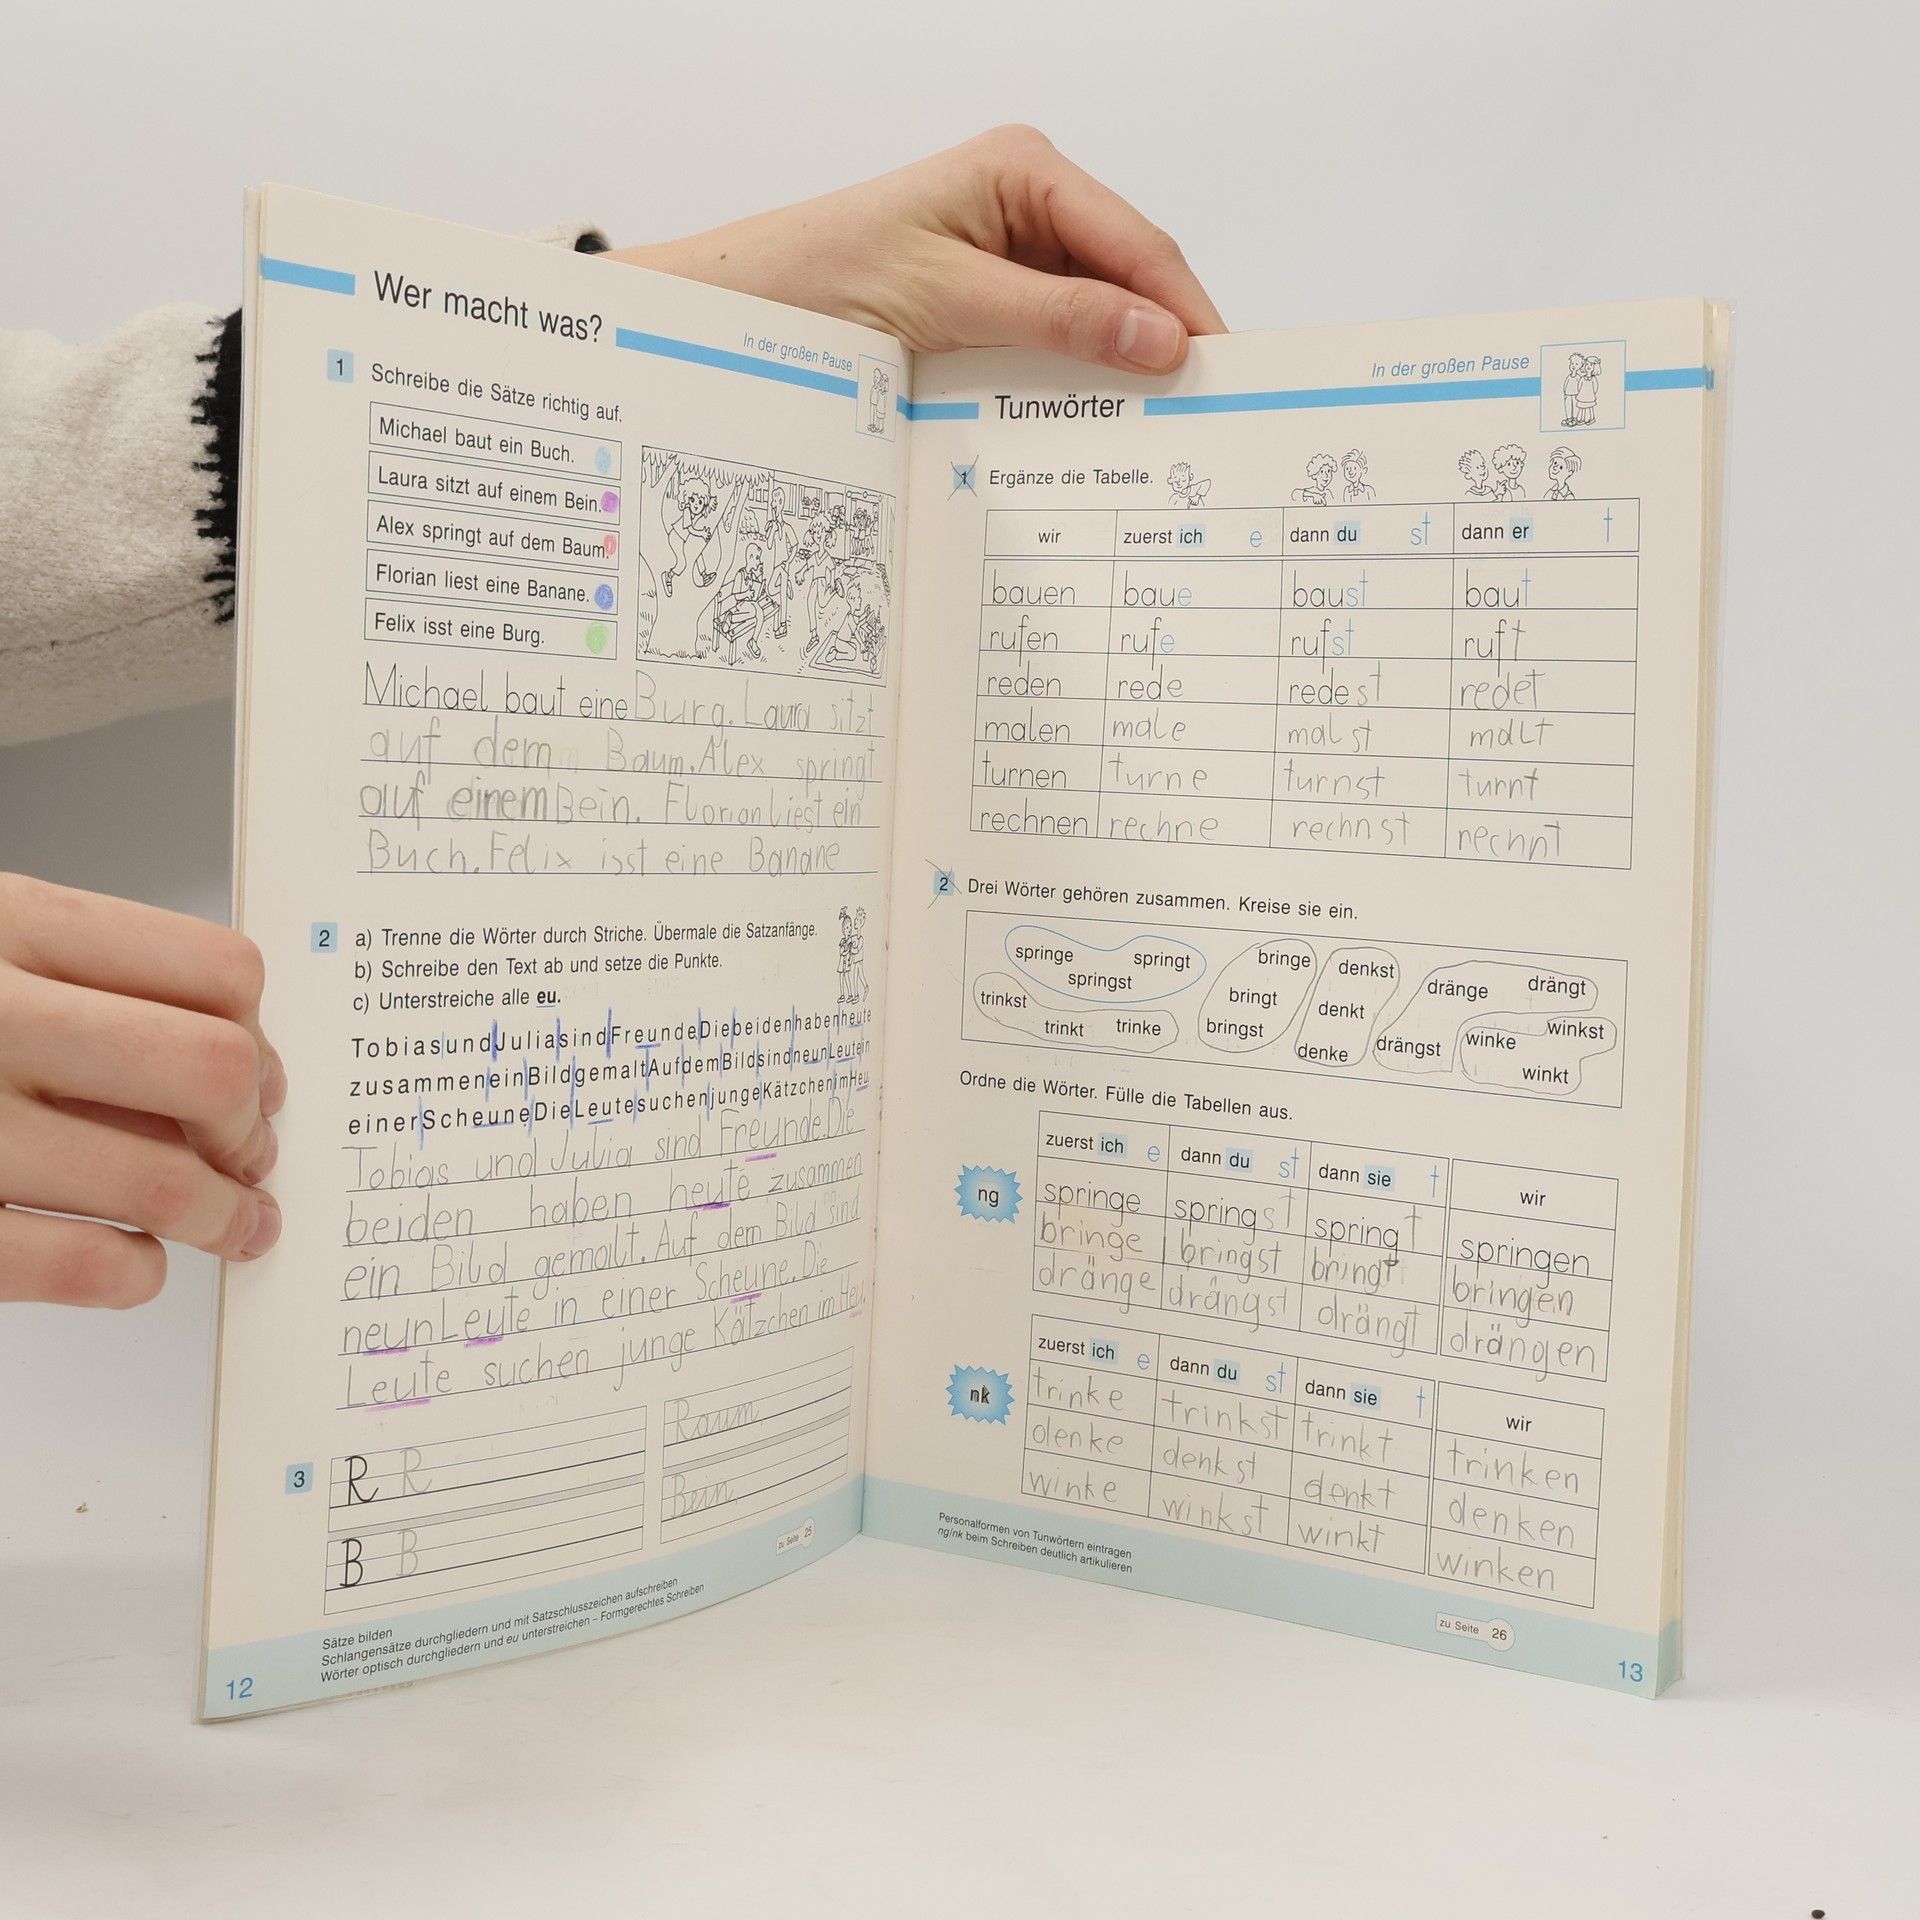 Wer macht was?
In der großen Pause
1 Schreibe die Sätze richtig auf.
Michael baut ein Buch.
Laura sitzt auf einem Bein.
Alex springt auf dem Baum.
Florian liest eine Banane.
Felix isst eine Burg.
Michael baut eine Burg. Laura sitzt
auf dem Baum. Alex springt
auf einem Bein. Florian liest ein
Buch. Felix isst eine Banane
2 a) Trenne die Wörter durch Striche. Übermale die Satzanfänge.
b) Schreibe den Text ab und setze die Punkte.
c) Unterstreiche alle eu.
TobiasundJuliasindFreundeDiebeidenhabenheute
zusammeneinBildgemaltAufdemBildsindneunLeutein
einerScheuneDieLeutesuchenjungeKätzchenimHeu
Tobias und Julia sind Freunde. Die
beiden haben heute zusammen
ein Bild gemalt. Auf dem Bild sind
neun Leute in einer Scheune. Die
Leute suchen junge Kätzchen im Heu.
3 R R Raum
B B Bein
zu Seite 25
Sätze bilden
Schlangensätze durchgliedern und mit Satzschlusszeichen aufschreiben
Wörter optisch durchgliedern und eu unterstreichen – Formgerechtes Schreiben
12
In der großen Pause
Tunwörter
1 Ergänze die Tabelle.
wir zuerst ich e dann du st dann er t
bauen baue baust baut
rufen rufe rufst ruft
reden rede redest redet
malen male malst malt
turnen turne turnst turnt
rechnen rechne rechnst rechnt
2 Drei Wörter gehören zusammen. Kreise sie ein.
springe springt bringe denkst dränge drängt
springst
trinkst bringt denkt
trinkt trinke bringst denke drängst winke winkst
winkt
Ordne die Wörter. Fülle die Tabellen aus.
zuerst ich e dann du st dann sie t wir
ng springe springst springt springen
bringe bringst bringt bringen
dränge drängst drängt drängen
zuerst ich e dann du st dann sie t wir
nk trinke trinkst trinkt trinken
denke denkst denkt denken
winke winkst winkt winken
Personalformen von Tunwörtern eintragen
ng/nk beim Schreiben deutlich artikulieren
zu Seite 26
13